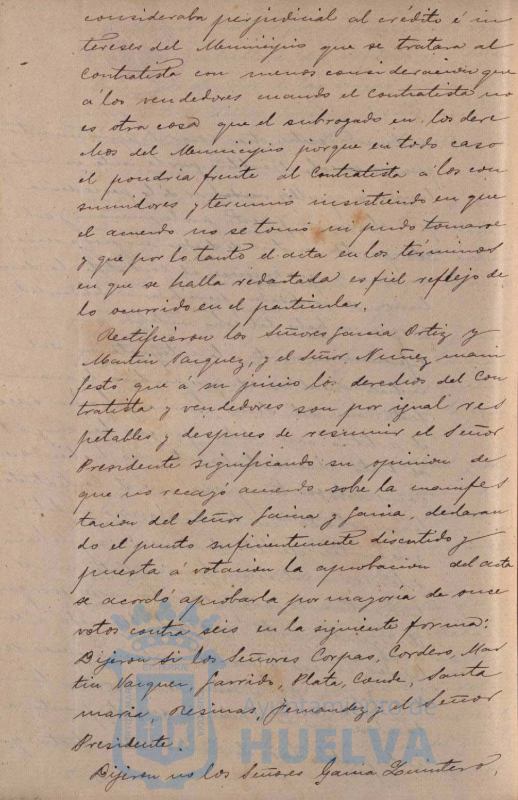 consideraba perjudicial al crédito é in
tereses del Municipio que se tratara al
Contratista con menos consideracion que
á los vendedores cuando el Contratista no
es otra cosa que el subrogado en los dere
chos del Municipio porque en todo caso
él pondria frente al Contratista á los con
sumidores y terminó insistiendo en que
el acuerdo no se tomó ni pudo tomarse
y que por lo tanto el acta en los términos
en que se halla redactada es fiel reflejo de
lo ocurrido en el particular.
Rectificaron los Señores Garcia Ortiz y
Martin Vazquez, y el Señor Nuñez mani
festó que á su juicio los derechos del Con
tratista y vendedores son por igual res
petables y despues de resumir el Señor
Presidente significando su opinion de
que no recayó acuerdo sobre la manifes
tacion del Señor Garcia y Garcia, declaran
do el punto suficientemente discutido y
puesta á votacion la aprobacion del acta
se acordó aprobarla por mayoría de once
votos contra seis en la siguiente forma:
Dijeron Si los Señores Corpas, Cordero, Mar
tin Vazquez, Garrido, Plata, Conde, Santa
maria, Resinas, Fernandez y el Señor
Presidente.
Dijeron no los Señores Garcia Quintero,
Ayuntamiento de
HUELVA